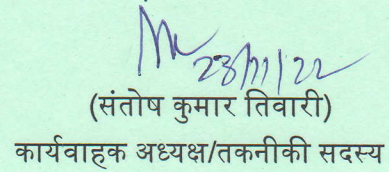 23/11/22
(संतोष कुमार तिवारी)
कार्यवाहक अध्यक्ष/तकनीकी सदस्य